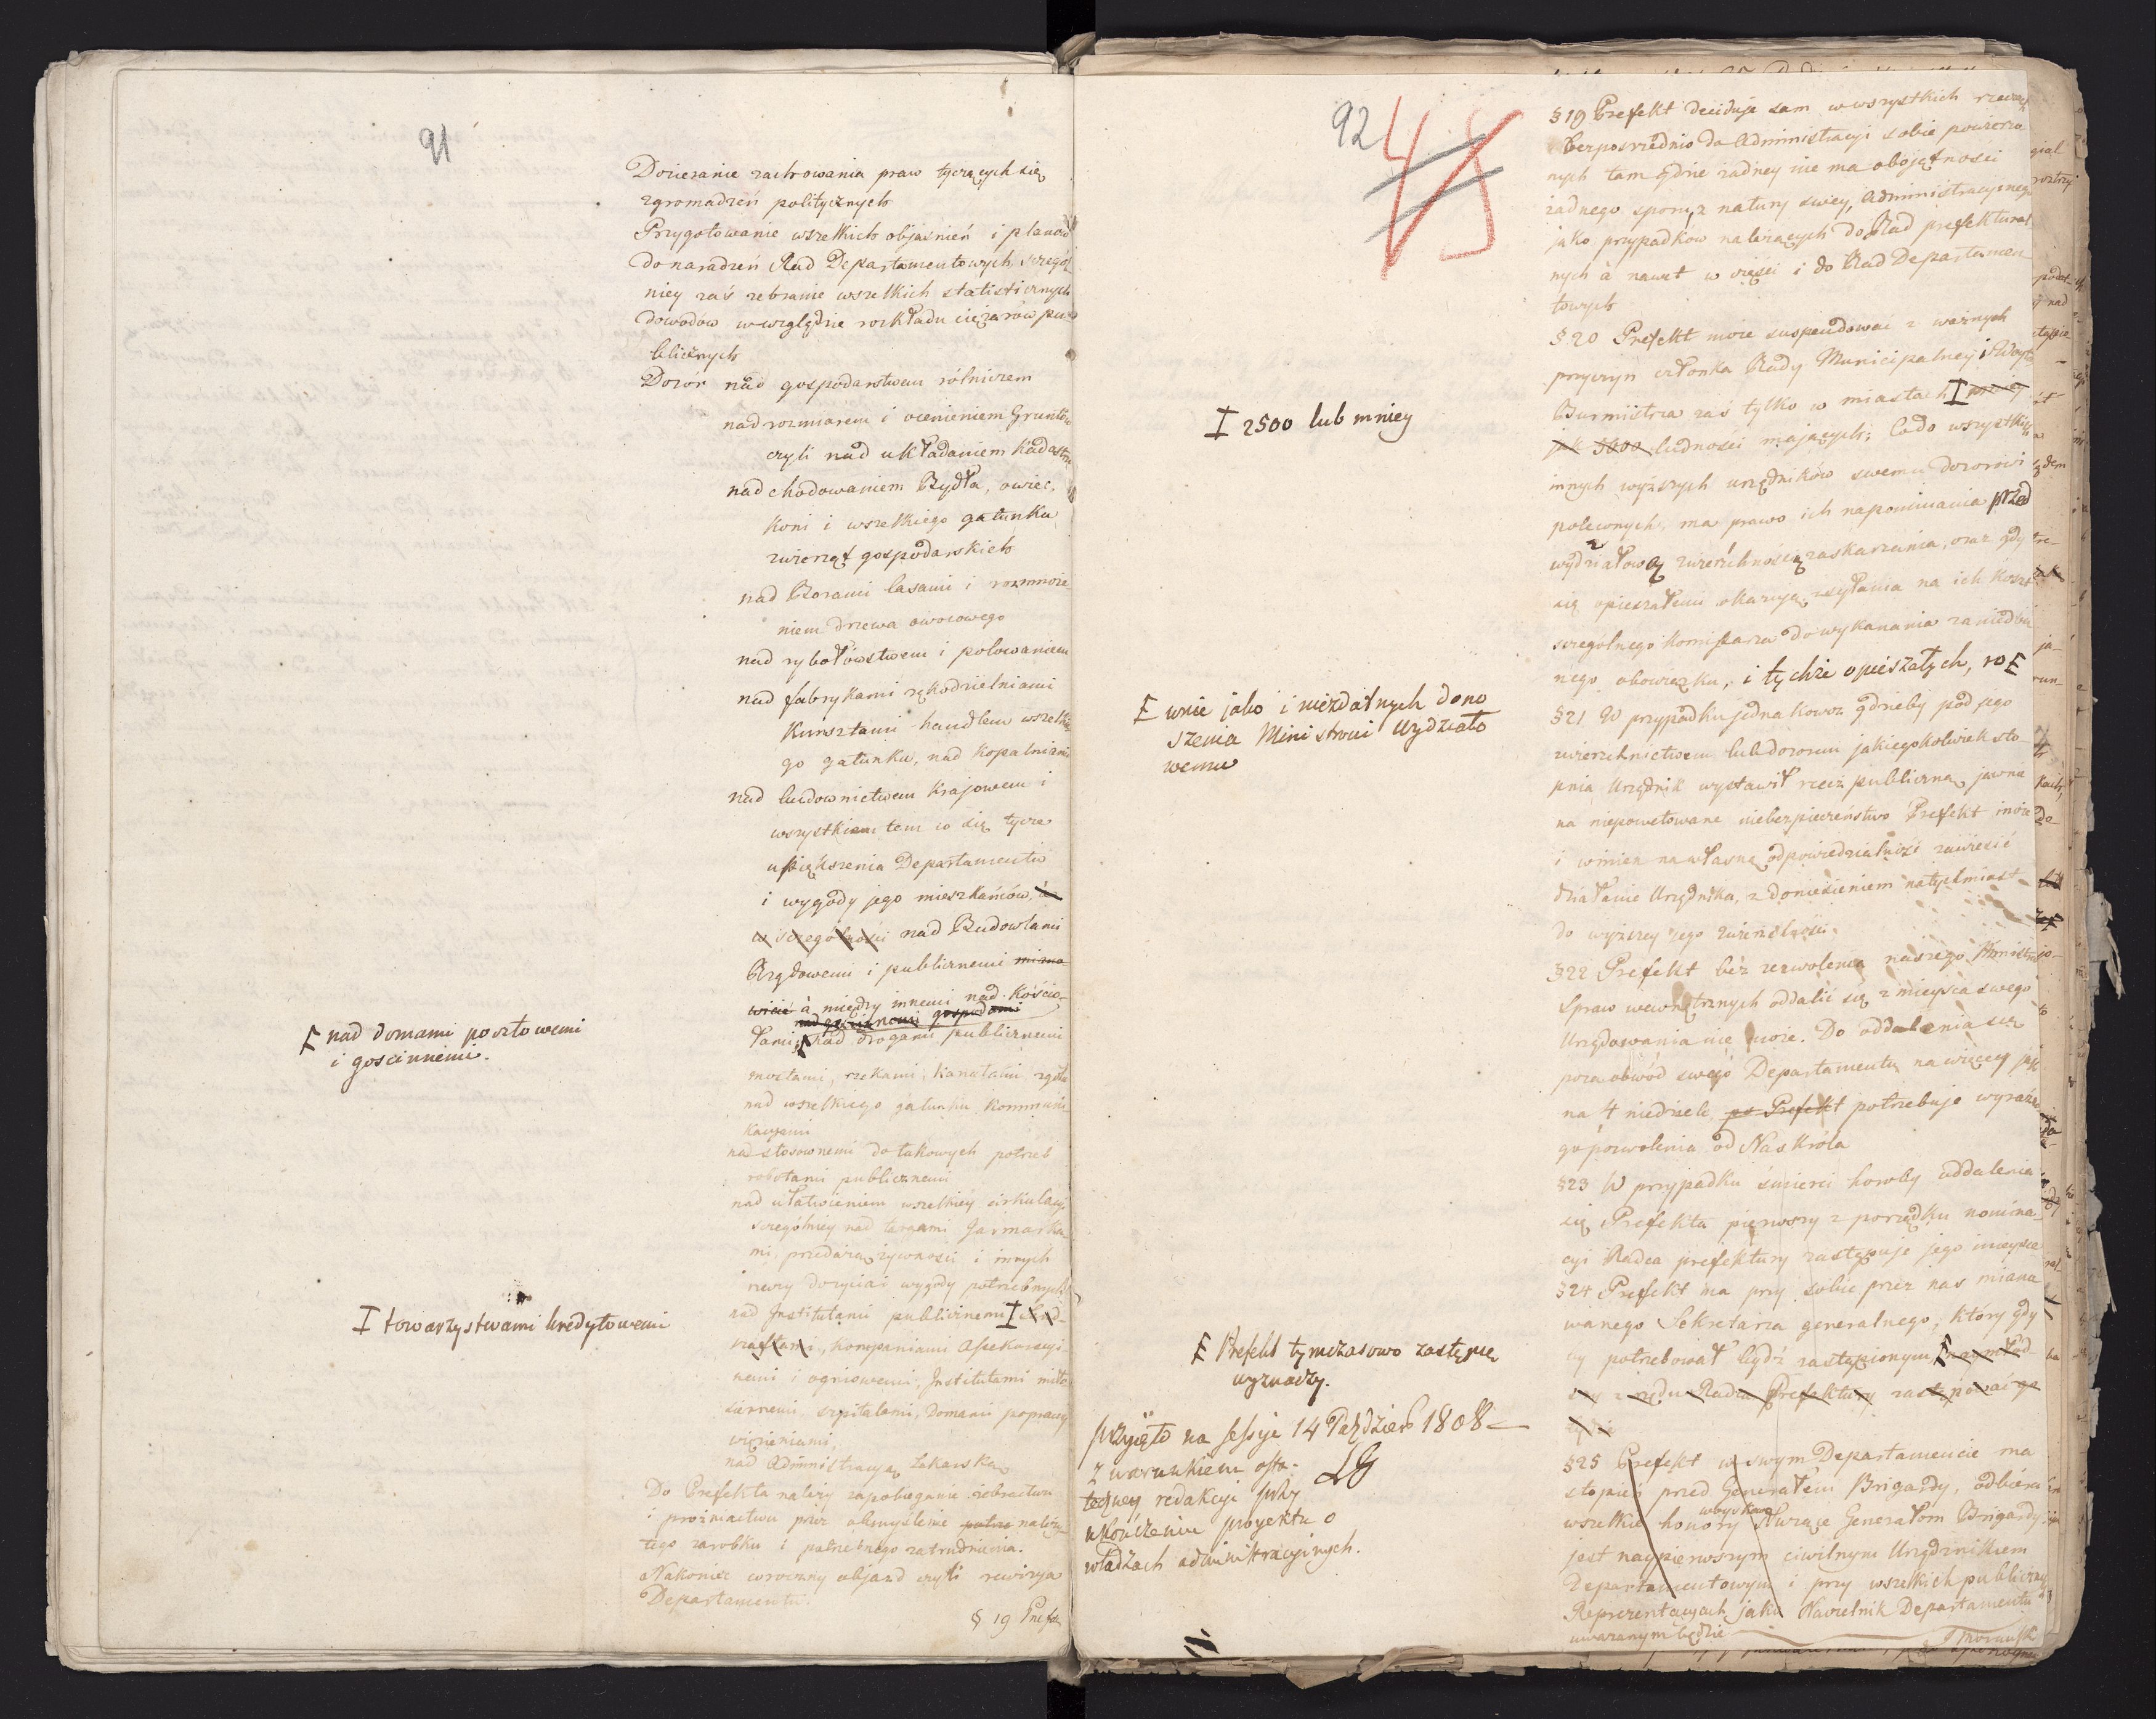 91
Dozieranie zachowania praw tyczących się
zgromadzeń politycznych
Przygotowanie wszelkich objaśnień i planów
do naradzeń Rad Departamentowych, szczegól
niey zaś zebranie wszelkich statisticznych
dowodów w względzie rozkładu ciężarów pu
blicznych
Dozór nad gospodarstwem rólniczem
nad rozmiarem i ocenieniem Gruntów
czyli nad układaniem Kadastru
nad chodowaniem Bydła, owiec,
koni i wszelkiego gatunku
zwierząt gospodarskich
nad Borami lasami i rozmnoże
niem drzewa owocowego
nad rybołówstwem i polowaniem
nad fabrykami rękodzielniami
Kunsztami handlem wszelkie
go gatunku, nad kopalniami
nad budownictwem krajowem i
wszystkiem tem co się tycze
upiększenia Departamentu
i wygody jego mieszkańców, a
w szczególności nad Budowlami
Rządowemi i publicznemi miano
wicie à między innemi nad Kościo-
nad gościnnemi gospodami
łami, nad drogami publicznemi
mostami, rzekami, kanałami zgoła
nad wszelkiego gatunku kommuni
kacyami
nad stosownemi do takowych potrzeb
robotami publicznemi
nad ułatwieniem wszelkiey cirkulacyi
szczególniey nad targami Jarmarka
mi, przedażą żywności i innych
rzeczy do życia i wygody potrzebnych
nad Institutami publicznemi I
kompaniami Assekuracyi
nemi i ogniowemi, Institutami miło
siernemi szpitalami, Domami poprawy
więzieniami,
nad Administracyą Lekarską
Do Prefekta należy zapobieganie żebractwu
i prożniactwu przez obmyślenie potrze należy
tego zarobku i potrzebnego zatrudnienia.
Nakoniec coroczny objazd czyli rewizya
Departamentu.
§ 19 Prefek
E nad domami pocztowemi
i gościnnemi.
I towarzystwami kredytowemi
92
45
§ 19 Prefekt deciduje sam w wszystkich rzeczach
bezpośrednio do Administracyi sobie powierzo
nych tam gdzie żadney nie ma obojętności
żadnego sporu, z natury swey, Administracyinego
jako przypadków należących do Rad prefektural
nych à nawet w części i do Rad Departamen
towych
§ 20 Prefekt może suspendować z ważnych
przyczyn członka Rady Municipalney i Woyta
Burmistrza zaś tylko w miastach I mniey
jak 5000 ludności mających; Co do wszystkich
innych wyższych urzędników swemu dozorowi
poleconych, ma prawo ich napominania przed
wydziałową zwierzchnością zaskarzania, oraz gdy
się opieszałemi okazują, zsyłania na ich koszt
szczególnego Komissarza do wykonania zaniedba
nego obowiązku, i tychże opieszałych, ro E
§ 21 W przypadku jednakowoż gdzieby pod jego
zwierzchnictwem lub dozorem jakiegokolwiek sto
pnia Urzędnik wystawił rzecz publiczną jawne
na niepowetowane niebezpieczeństwo Prefekt może
i winien na własną odpowiedzialność zawiesić
działanie Urzędnika, z doniesieniem natychmiast
do wyższey jego zwierzchności.
§ 22 Prefekt béz zezwolenia naszego Ministra
Spraw wewnętrznych oddalić się z mieysca swego
Urzędowania nie może. Do oddalenia się
poza obwód swego Departamentu na więcey jak
na 4 niedziele po Prefekt potrzebuje wyraźne
go pozwolenia od Nas Króla
§ 23 W przypadku śmierci horoby oddalenia
się Prefekta pierwszy z porządku nomina
cyi Radca prefektury zastępuje jego mieysce
§ 24 Prefekt ma przy sobie przez nas miano
wanego Sekretarza generalnego, który gdy
by potrzebował bydź zastąpionym, E naymłod-
szy z rzędu Radca Prefektury zastępować go
będzie
§ 25 Prefekt w swym Departamencie ma
stopień przed Generałem Brigady, odbiera
wszelkie honory woyskowe służące Generałom Brigady
jest naypierwszym ciwilnym Urzędnikiem
Departamentowym i przy wszelkich publicznych
Reprezentacyach jako Naczelnik Departamentu
uważanym będzie
I 2500 lub mniey
E wnie jako i niezdatnych dono
szenia Ministrowi Wydziało
wemu
E Prefekt tymczasowo zastępcę
wyznaczy.
przyięto na sessyi 14 Paździer 1808
z warunkiem osta-
teczney redakcyi przy
ukończeniu proyektu o
władzach administracyinych.